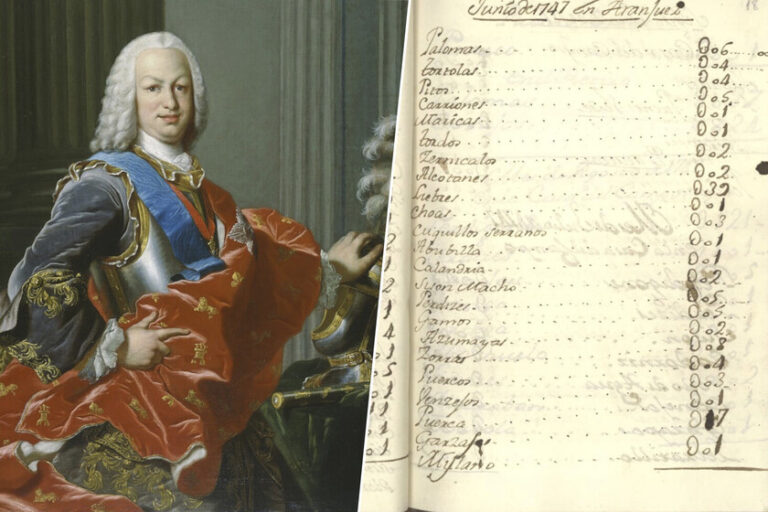 Junio de 1747 en Aranjuez
Palomas 006
tortolas 004
Pitos 004
Carriones 005
Maricas 001
tordos 001
Zernicalos 002
Alcotanes 002
Liebres 032
Choas 001
Cuquillos serranos 003
Abubilla 001
Calandria 001
Sison Macho 002
Perdizes 005
Gamos 005
Azumayas 002
Zorras 008
Puercos 004
Venzejos 003
Puerca 001
Garzas 017
Mylano 001